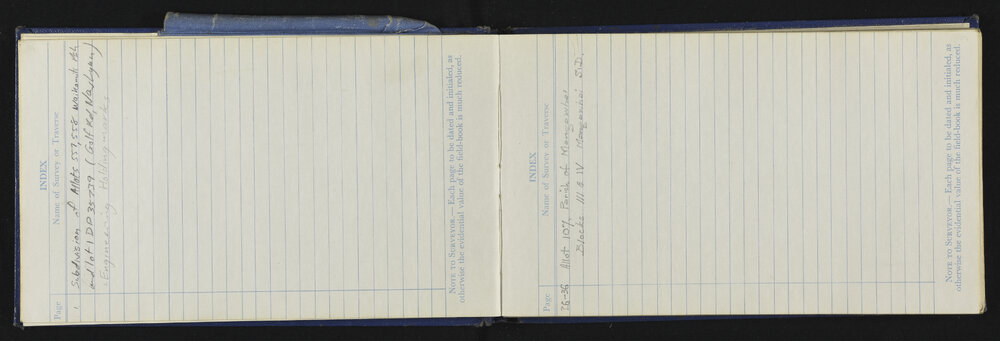 INDEX
Page Name of Survey or Traverse
1 Subdivision of Allots 557, 558 Waikomiti Psh
and lot 1 DP 35739 (Golf Rd,
Engineering Holding marks
NOTE TO SURVEYOR.— Each page to be dated and initialed, as
otherwise the evidential value of the field-book is much reduced.
INDEX
Page Name of Survey or Traverse
26-36 Allot 107, Parish of Mangawhai
Blocks III & IV Mangawhai S.D.
NOTE TO SURVEYOR.— Each page to be dated and initialed, as
otherwise the evidential value of the field-book is much reduced.